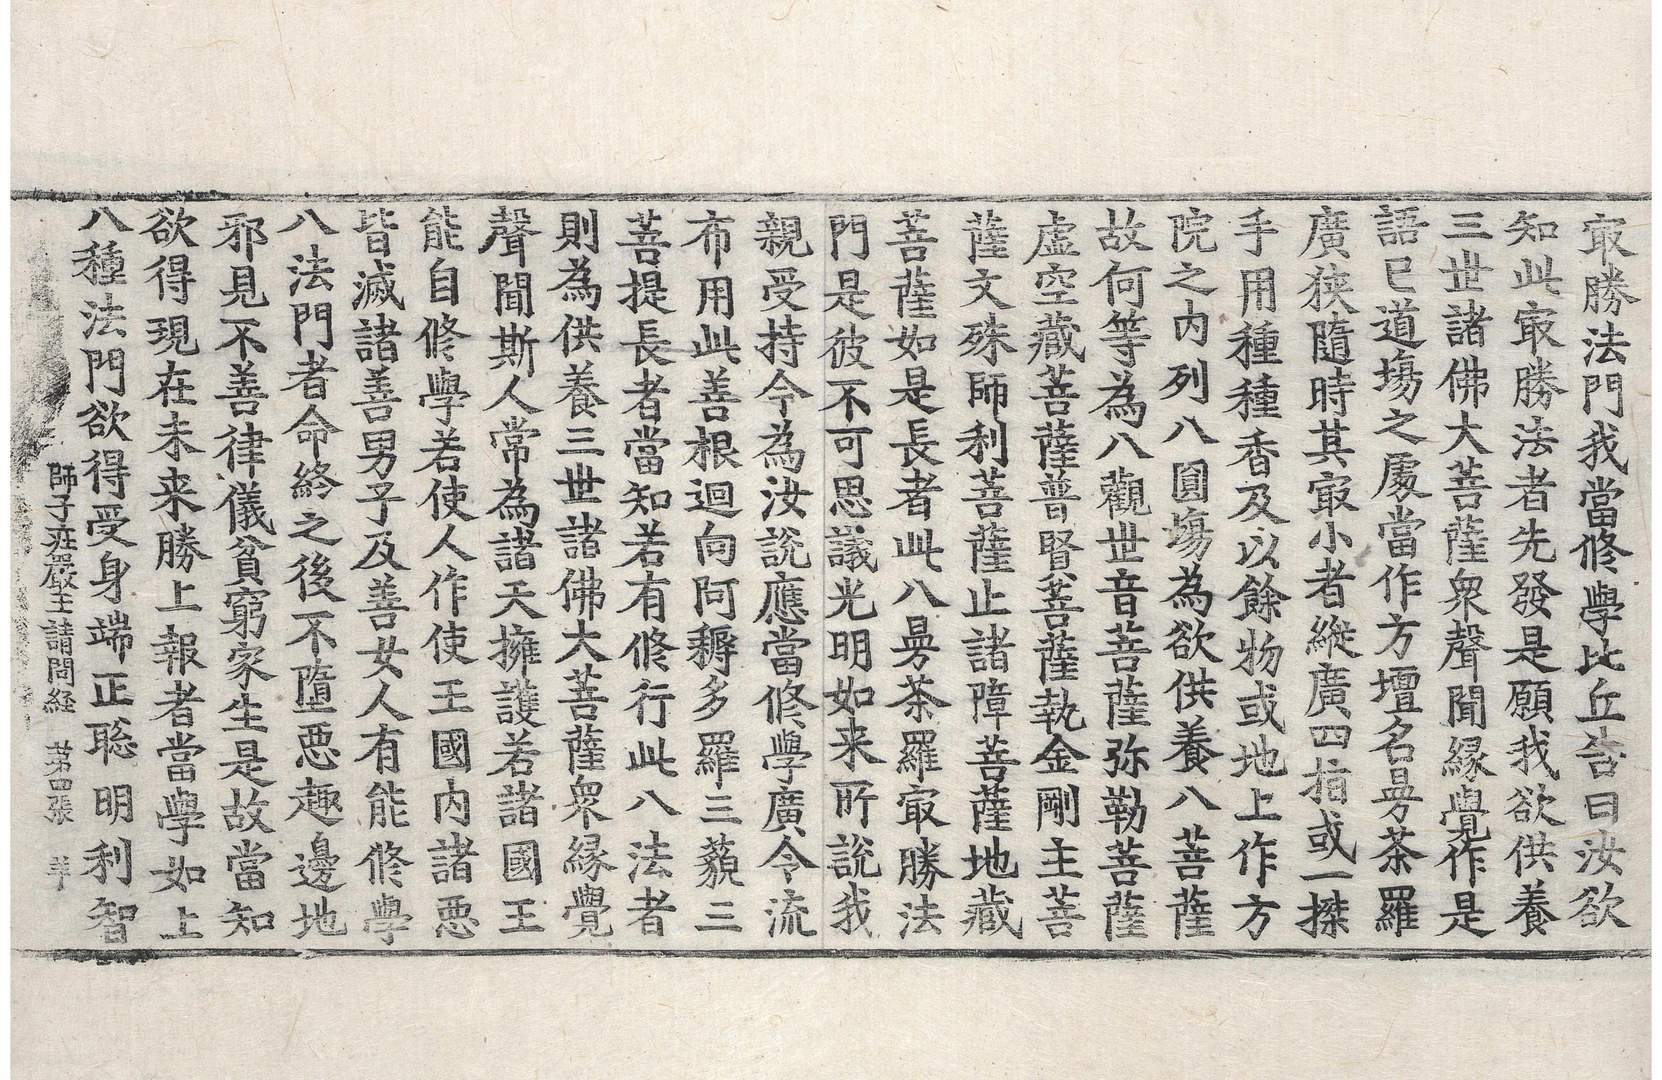 冣勝法門我當修學比丘告曰汝欲
知此冣勝法者先發是願我欲供養
三世諸佛大菩薩衆聲聞縁覺作是
語已道塲之處當作方壇名曼茶羅
廣狹隨時其冣小者縱廣四指或一搩
手用種種香及以餘物或地上作方
院之内列八圓塲為欲供養八菩薩
故何等為八觀世音菩薩弥勒菩薩
虛空藏菩薩普賢菩薩執金剛主菩
薩文殊師利菩薩止諸障菩薩地藏
菩薩如是長者此八曼茶羅冣勝法
門是彼不可思議光明如来所說我
親受持今為汝說應當修學廣令流
布用此善根迴向阿耨多羅三藐三
菩提長者當知若有修行此八法者
則為供養三世諸佛大菩薩衆縁覺
聲聞斯人常為諸天擁護若諸國王
能自修學若使人作使王國内諸惡
皆滅諸善男子及善女人有能修學
八法門者命終之後不墮惡趣邊地
邪見不善律儀貧窮家生是故當知
欲得現在未来勝上報者當學如上
八種法門欲得受身端正聡明利智
師子莊嚴王請問経 苐四張 羊